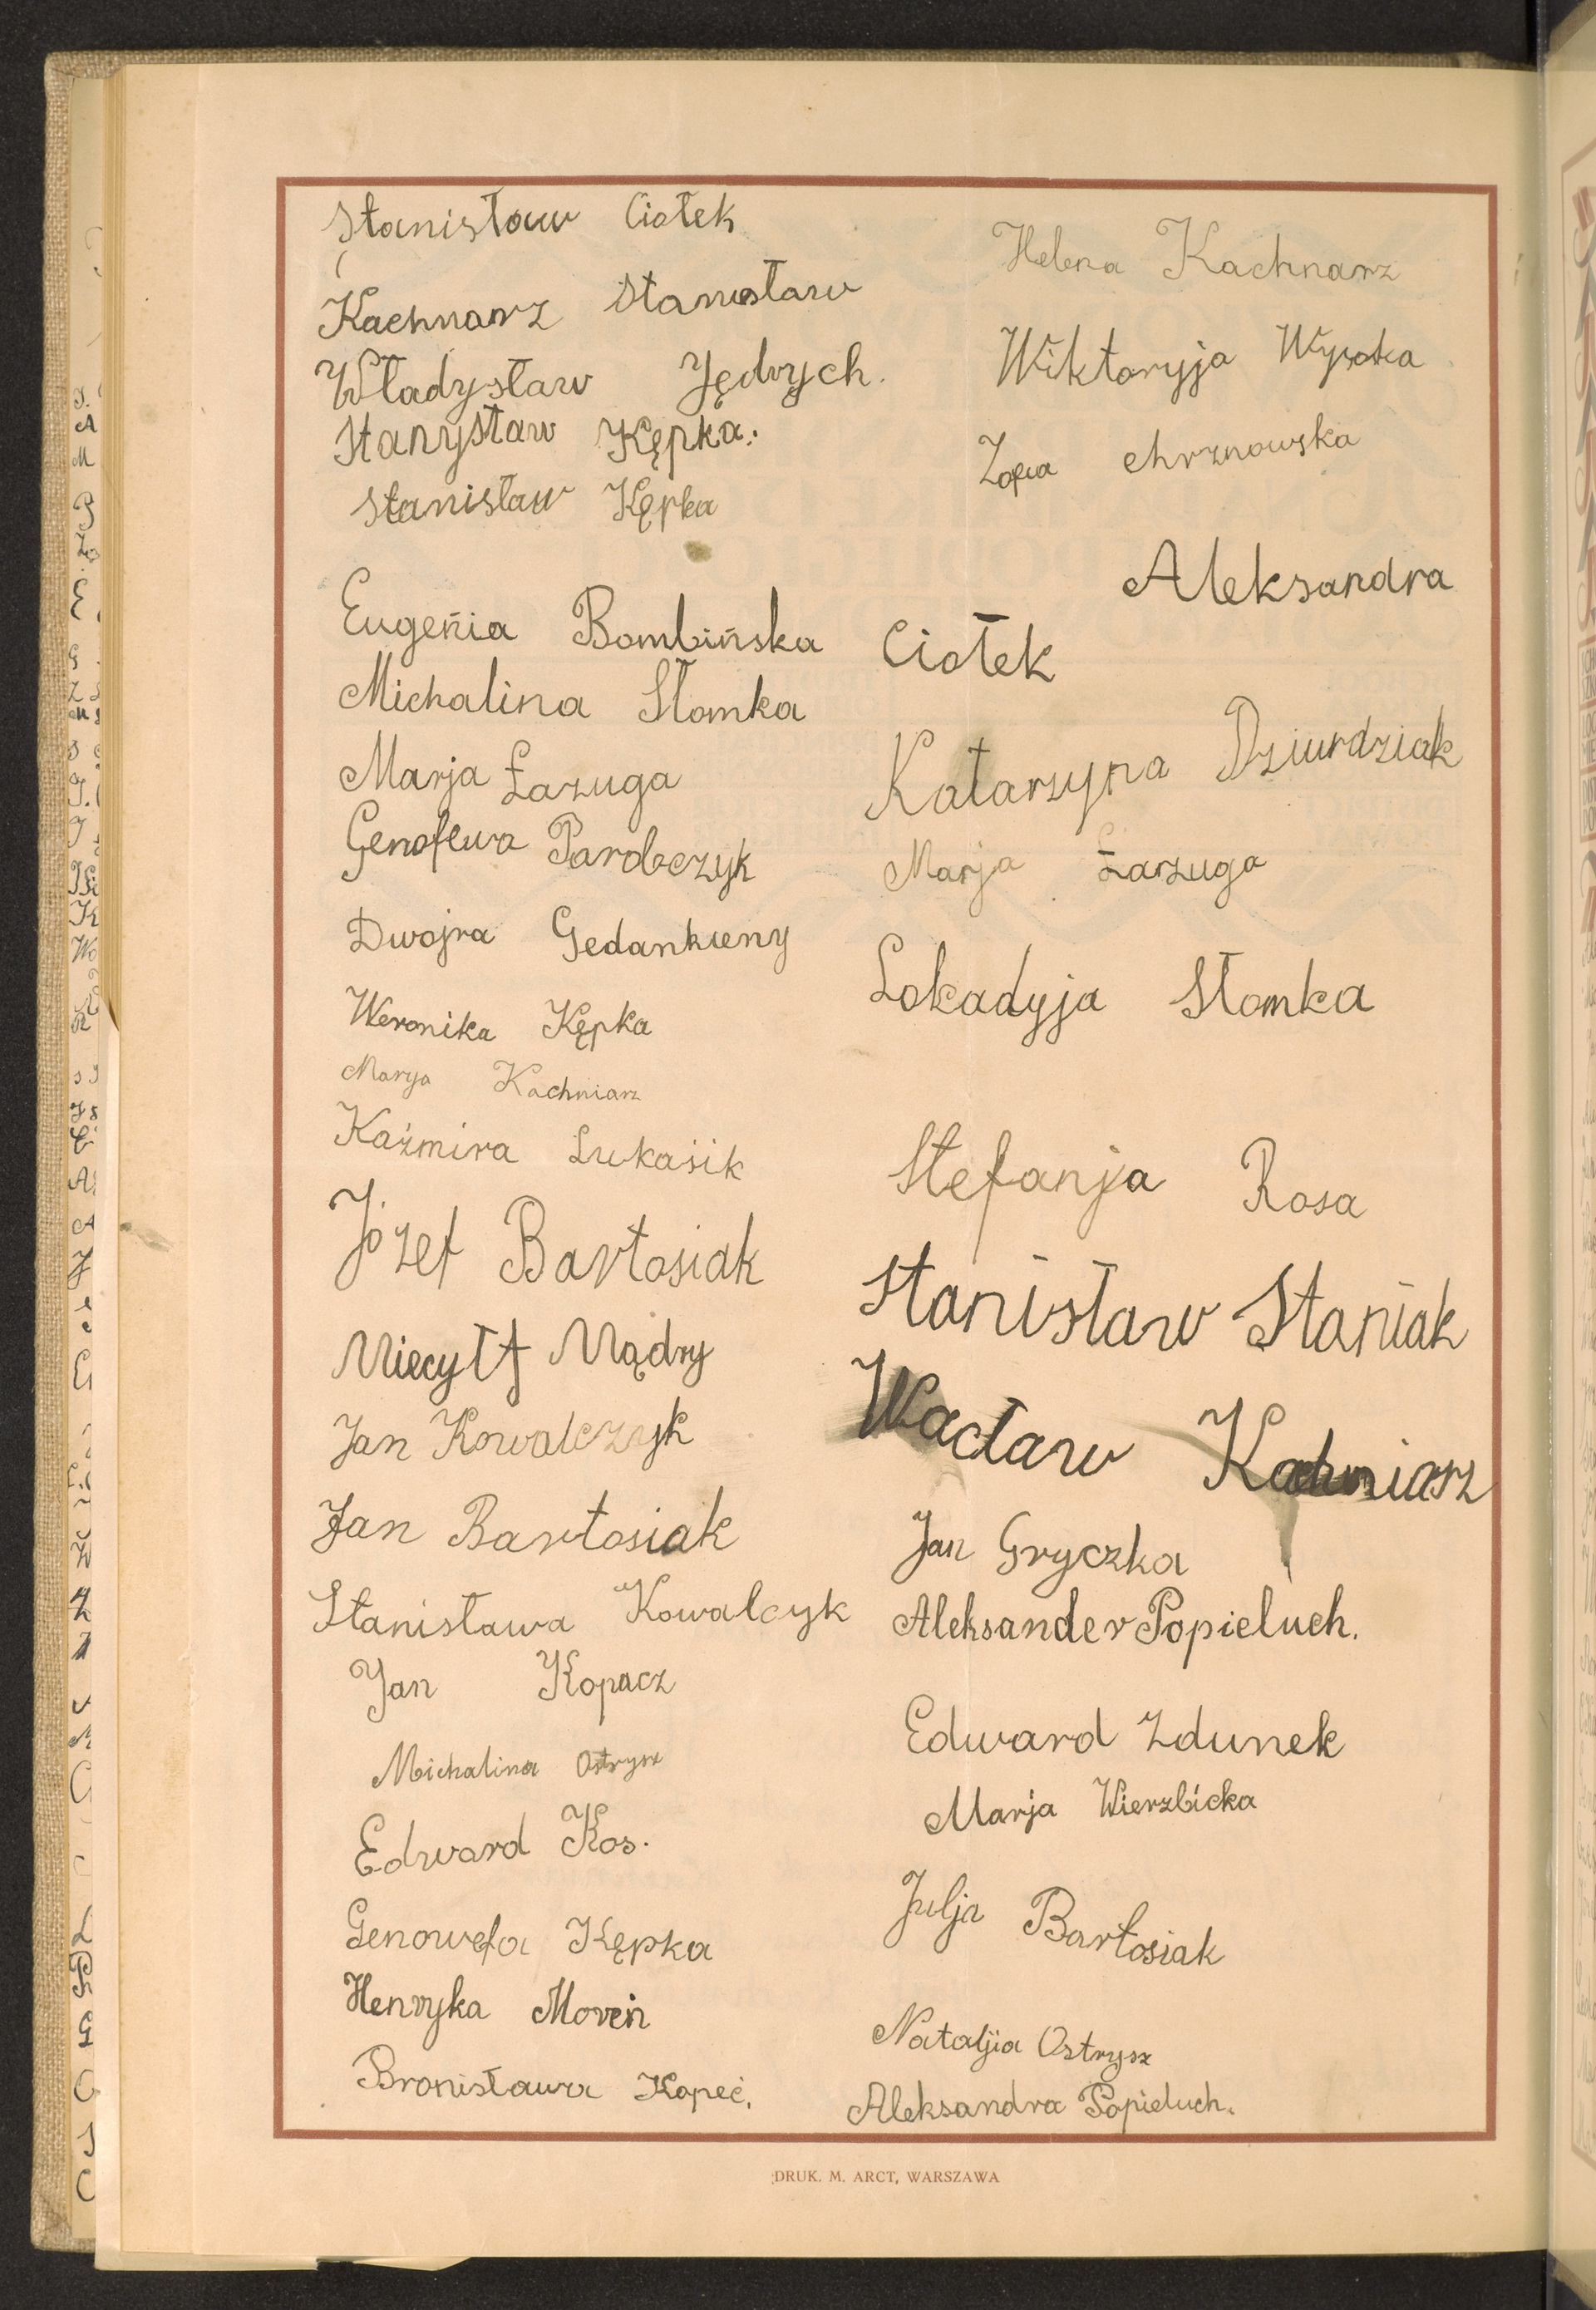 Stanisław Ciołek
Kachnarz Stanisław
Władysław Jędrych.
Stanysław Kępka.
Stanisław Kępka
Eugeńia Bombińska
Michalina Słomka
Marja Łazuga
Genofewa Parobczyk
Dwojra Gedankieny
Weronika Kępka
Marya Kachniarz
Kaźmira Lukaśik
Józef Bartosiak
Miecyłf Mądry
Jan Kowalczyk
Jan Bartosiak
Stanisława Kowalcyk
Jan Kopacz
Michalina Ostrysz
Edward Kos.
Genowefa Kępka
Henryka Moreń
Bronisława Kopeć.
Helena Kachnarz
Wiktoryja Wysoka
Zofia Chrznowska
Aleksandra
Ciołek
Katarzyna Dziurdziak
Marja Łarzuga
Lokadyja Słomka
Stefanja Rosa
Stanisław Staniak
Wacław Kachniarz
Jan Gryczka
Aleksander Popieluch.
Edward Zdunek
Marja Wierzbicka
Julja Bartosiak
Nataljia Ostrysz
Aleksandra Popieluch.
DRUK. M. ARCT, WARSZAWA